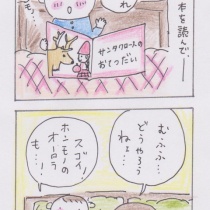 本を読んで、ー
れ
も。
サンタクロースの
おてつだい
むふふ…
どうやろう
ねぇ…
スゴイ!
ホンモノの
オーロラ
も…!